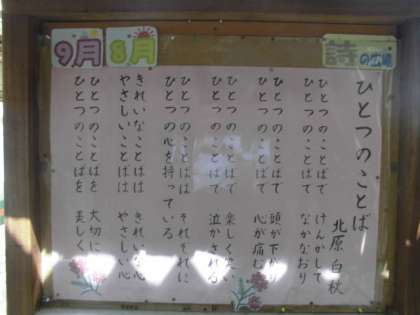 9月
8月
詩の広場
ひとつのことば
北原白秋
ひとつのことばで けんかして
ひとつのことばで なかなおり
ひとつのことばで 頭が下がり
ひとつのことばで 心が痛む
ひとつのことばで 楽しく
ひとつのことばで 泣かされる
ひとつのことばは それぞれに
ひとつの心を持っている
きれいなことばは きれいな心
やさしいことばは やさしい心
ひとつのことばを 大切に
ひとつのことばを 美しく